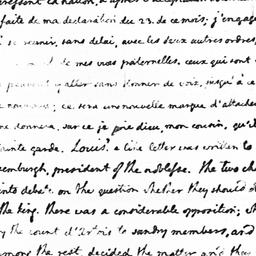 la nation, d'après l'acceptation
faite de ma declaration du 23. de ce mois; j'engage
se reunir, sans delai, avec les deux autres ordres,
de mes vues paternelles. ceux qui sont
peuvent y aller sans donner de voix, jusqu'à ce
nouveaux; ce sera une nouvelle marque d'attache
me donnera. sur ce je prie dieu, mon cousin, qu'il
sainte garde. Louis.' a like letter was written to
xemburgh, president of the noblesse. The two cha
into debate on the question whether they should o
the king. there was a considerable opposition; wh
by the count d'Artois to sundry members, and
among the rest, decided the matter, and